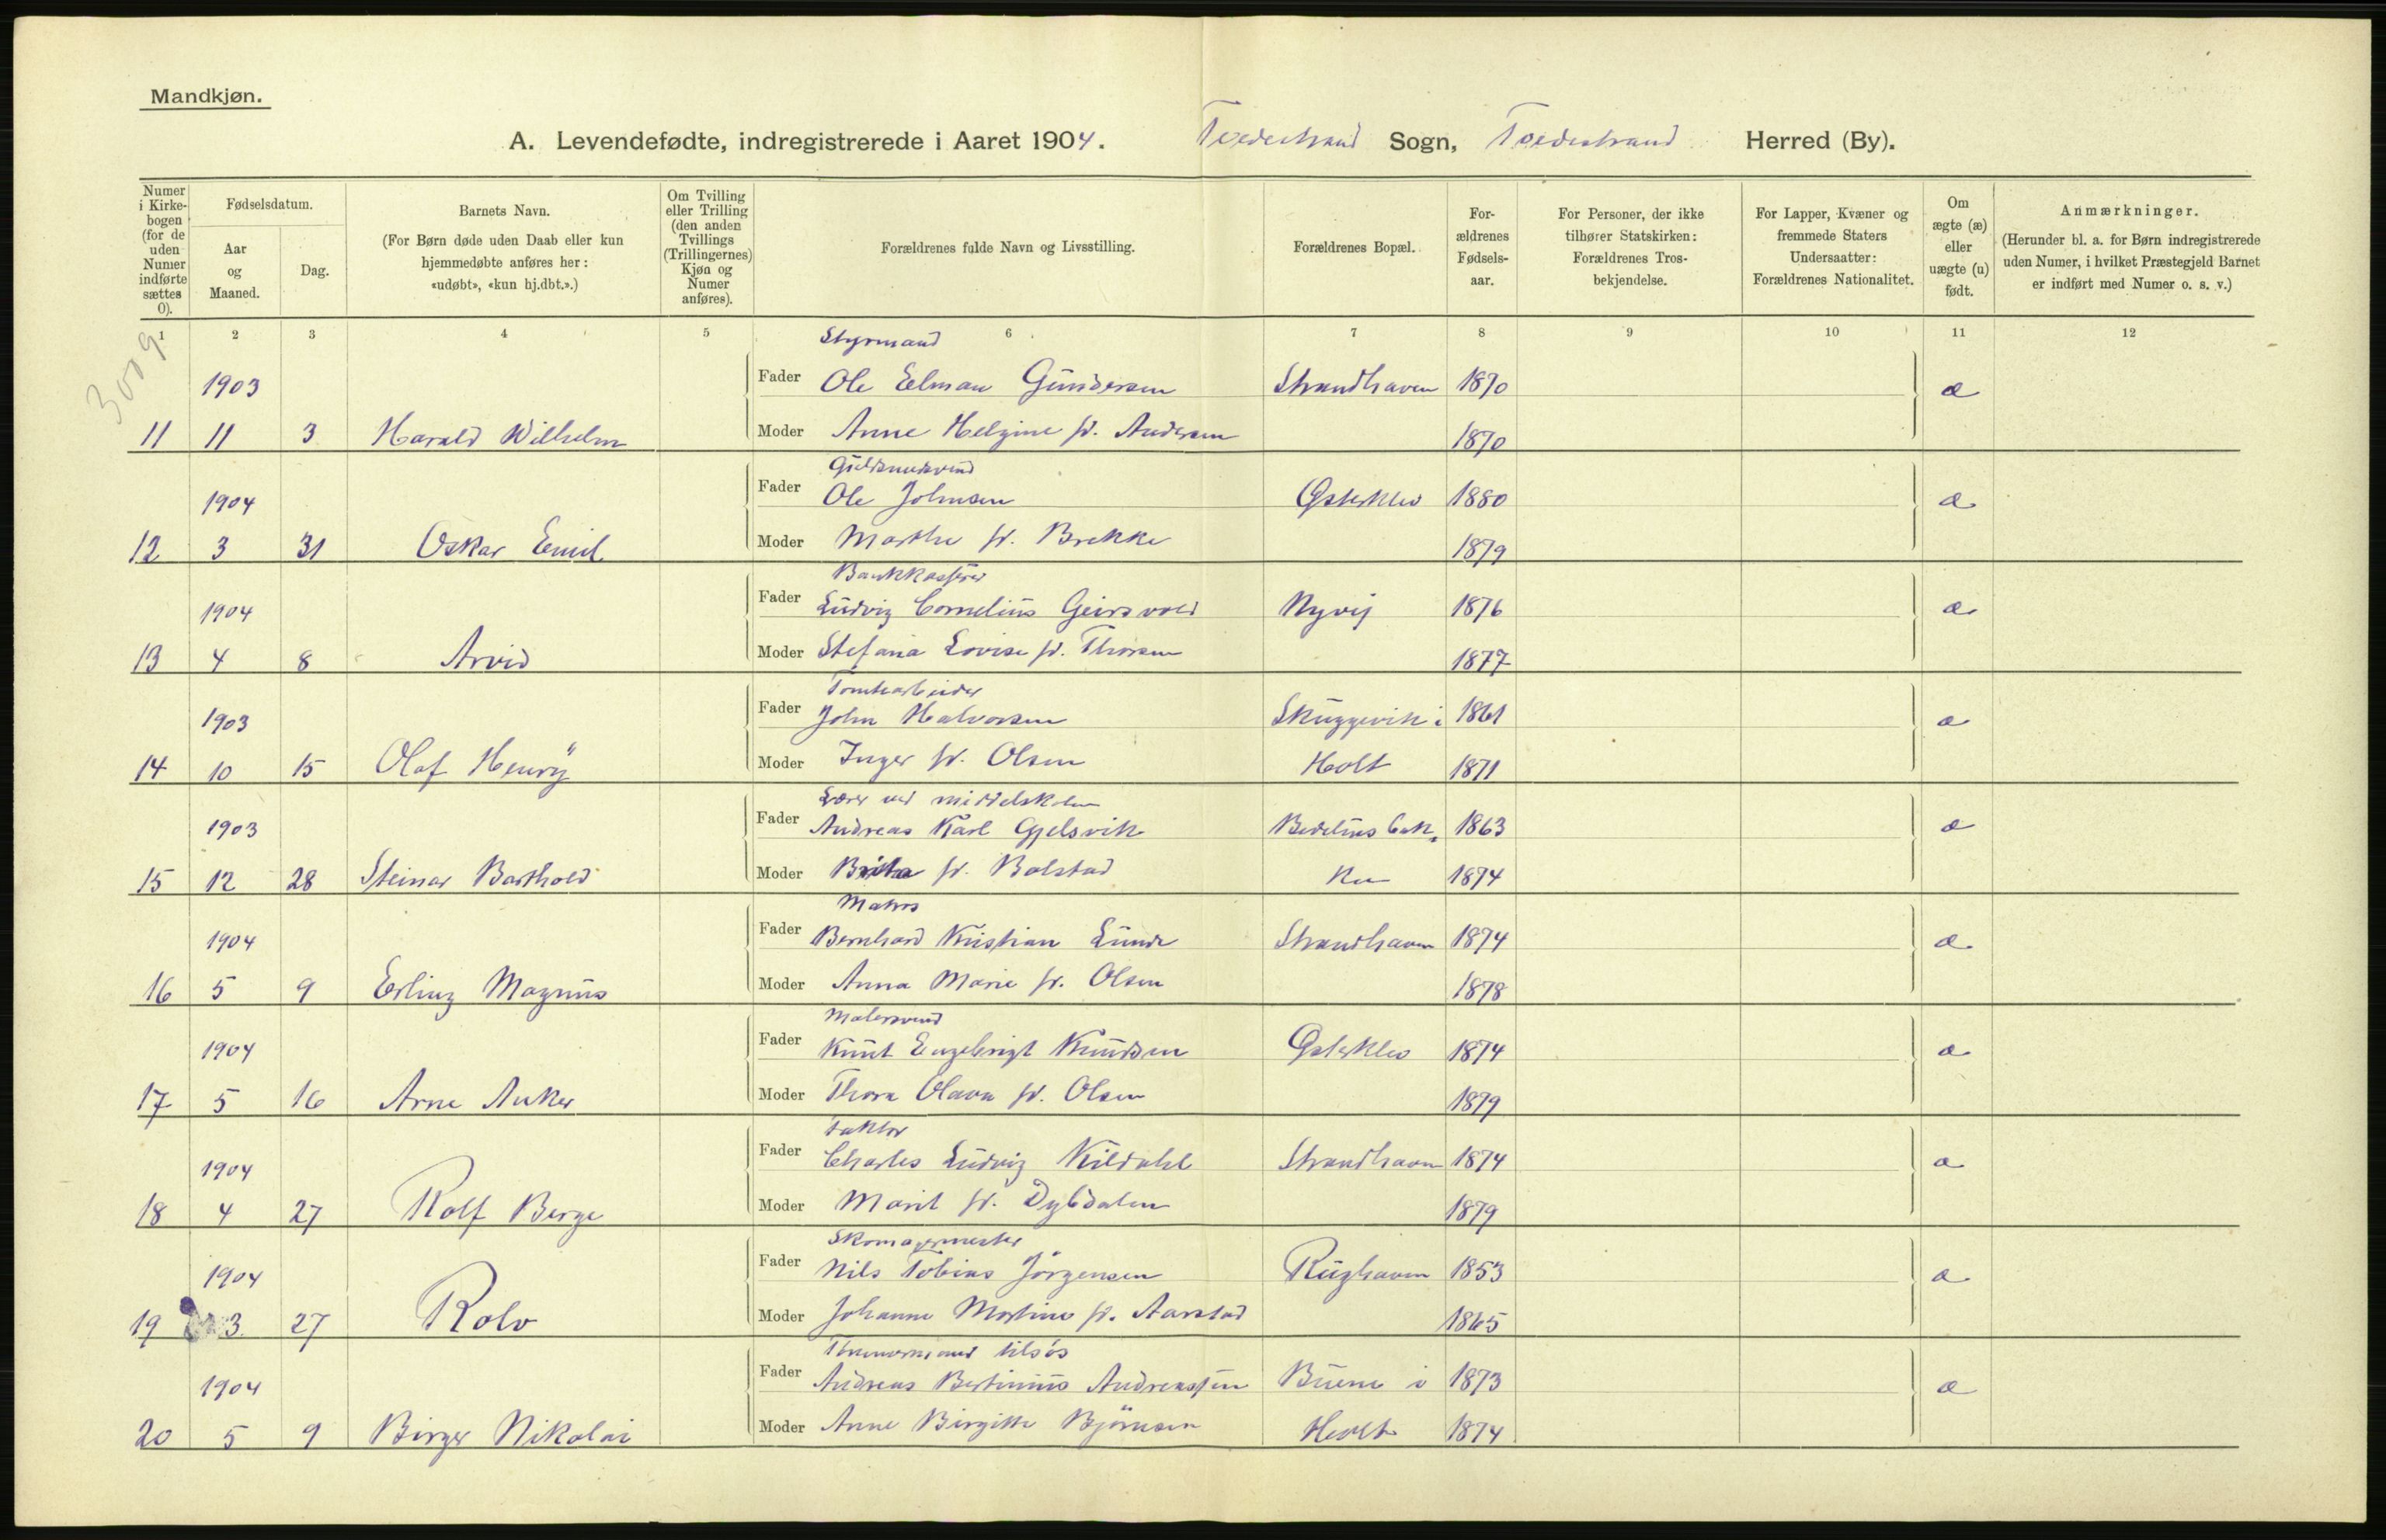 Mandkjøn.
A. Levendefødte, indregistrerede i Aaret 1904. Tvedestrand Sogn, Tvedestrand Herred (By).
Numer i Kirkebogen (for de uden Numer indførte sættes 0).
Fødselsdatum.
Aar og Maaned.
Dag.
Barnets Navn.
(For Børn døde uden Daab eller kun hjemmedøbte anføres her: «udøbt», «kun hj.dbt.».)
Om Tvilling eller Trilling (den anden Tvillings (Trillingernes) Kjøn og Numer anføres).
Forældrenes fulde Navn og Livsstilling.
Forældrenes Bopæl.
Forældrenes Fødselsaar.
For Personer, der ikke tilhører Statskirken: Forældrenes Trosbekjendelse.
For Lapper, Kvæner og fremmede Staters Undersaatter: Forældrenes Nationalitet.
Om ægte (æ) eller uægte (u) født.
Anmærkninger.
(Herunder bl. a. for Børn indregistrerede uden Numer, i hvilket Præstegjeld Barnet er indført med Numer o. s. v.)
1 2 3 4 5 6 7 8 9 10 11 12
3009
Styrmand
1903 Fader Ole Elman Gundersen Strandhaven 1870 æ
11 11 3 Harald Wilhelm Moder Anne Helgine f. Andersen 1870
Guldsmedsvend
1904 Fader Ole Johnsen Østerklev 1880 æ
12 3 31 Oskar Emil Moder Marthe f. Brekke 1879
Bankkasserer
1904 Fader Ludvig Cornelius Geirsvold Nyvej 1876 æ
13 4 8 Arvid Moder Stefana Lovise f. Thorsen 1877
Tomtearbeider
1903 Fader John Halvorsen Skuggevik i 1861 æ
14 10 15 Olaf Henry Moder Inger f. Olsen Holt 1871
Lærer ved middelskolen
1903 Fader Andreas Karl Gjelsvik 1863 æ
15 12 28 Steinar Barthold Moder Brita f. Bolstad 1874
Matros
1904 Fader Bernhard Kristian Lunde Strandhaven 1874 æ
16 5 9 Erling Magnus Moder Anna Marie f. Olsen 1878
Malersvend
1904 Fader Knut Engebrigt Knudsen Østerklev 1874 æ
17 5 16 Arne Anker Moder Thora Olava f. Olsen 1879
Faktor
1904 Fader Charles Ludvig Kildahl Strandhaven 1874 æ
18 4 27 Rolf Berge Moder Marit f. Dybdalen 1879
Skomagermester
1904 Fader Nils Tobias Jörgensen Rughaven 1853 æ
19 3 27 Rolv Moder Johanne Martine f. Aarstad 1865
Tømmermand tilsös
1904 Fader Andreas Bertinius Andreassen Buene i 1873 æ
20 5 9 Birger Nikolai Moder Anne Birgitte Björnsen Holt 1874